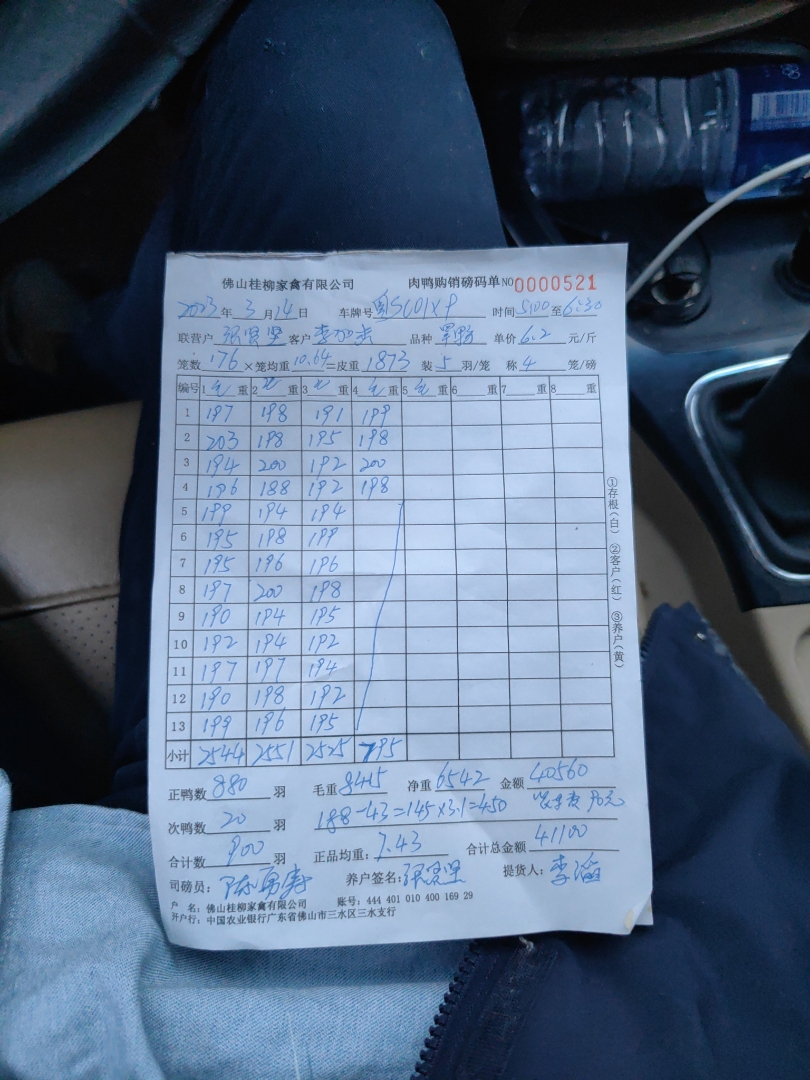 佛山桂柳家禽有限公司 肉鸭购销磅码单 NO 0000521
2023年 3月14日 车牌号 时间 5:00至6:30
联营户 张贤坚 客户 品种 单价 6.2 元/斤
笼数 176 ×笼均重 10.64 =皮重 1873 装 5 羽/笼 称 4 笼/磅
编号 1 毛 重 2 毛 重 3 毛 重 4 毛 重 5 毛 重 6 重 7 重 8 重
1 197 198 191 199
2 203 198 195 198
3 194 200 192 200
4 196 188 192 198
5 199 194 194
6 195 198 199
7 195 196 196
8 197 200 198
9 190 194 195
10 192 194 192
11 197 197 194
12 190 198 192
13 199 196 195
小计 2544 2551 2525 795
正鸭数 880 羽 毛重 8415 净重 6542 金额 40560
次鸭数 20 羽 188-43=145×3.1=450
合计数 900 羽 正品均重: 7.43 合计总金额 41100
司磅员: 养户签名: 张贤坚 提货人: 李
户 名: 佛山桂柳家禽有限公司 账号: 444 401 010 400 169 29
开户行: 中国农业银行广东省佛山市三水区三水支行
①存根(白) ②客户(红) ③养户(黄)